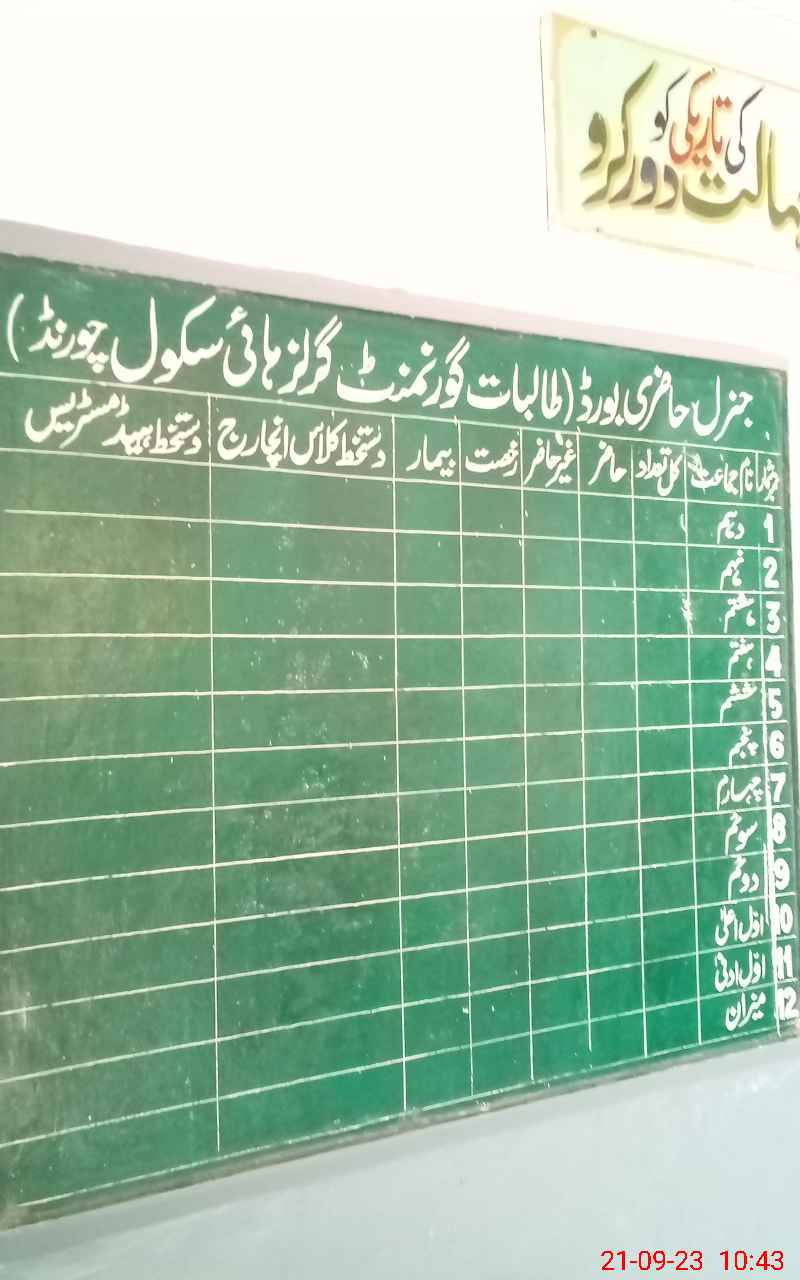 کی تاریکی کو
جہالت دور کرو
جنرل حاضری بورڈ (طالبات گورنمنٹ گرلز ہائی سکول چورنڈ)
نام جماعت کل تعداد حاضر غیر حاضر رخصت بیمار دستخط کلاس انچارج دستخط ہیڈ مسٹریس
1 دہم
2 نہم
3 ہشتم
4 ہفتم
5 ششم
6 پنجم
7 چہارم
8 سوئم
9 دوئم
10 اوّل اعلیٰ
11 اوّل ادنیٰ
12 میزان
21-09-23 10:43